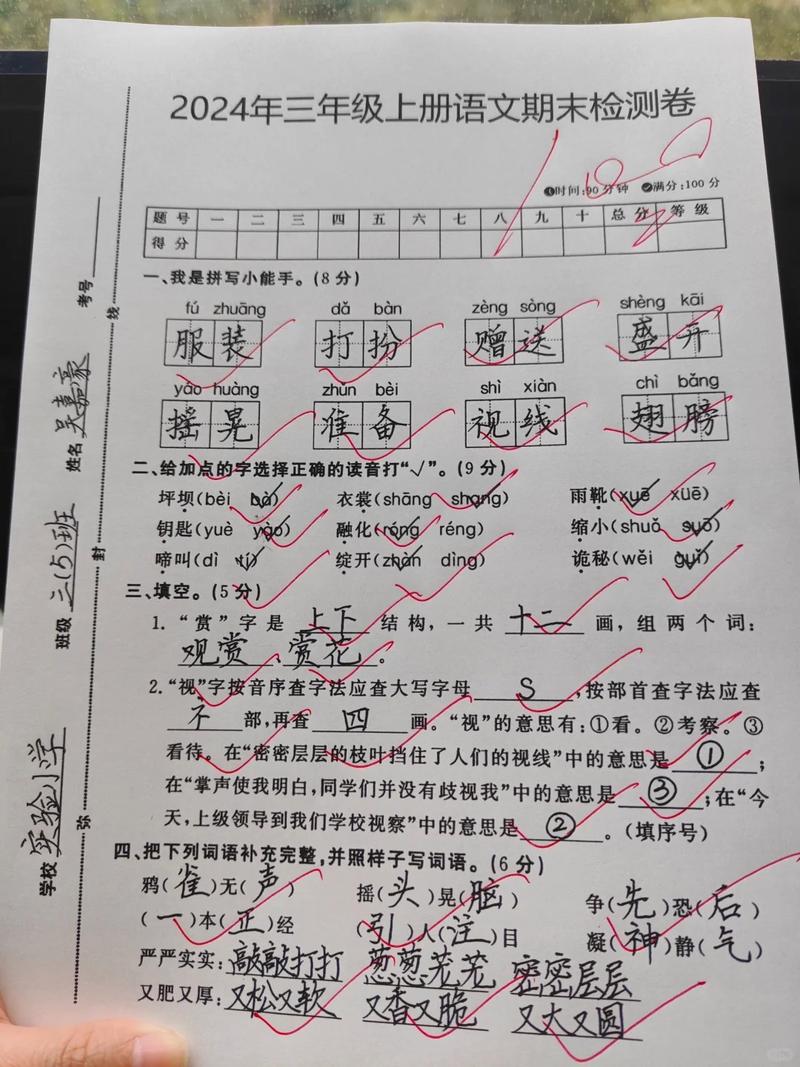 2024年三年级上册语文期末检测卷
100
时间:90分钟 满分:100分
题号 一 二 三 四 五 六 七 八 九 十 总分 等级
得分
一、我是拼写小能手。(8分)
fú zhuāng dǎ bàn zèng sòng shèng kāi
服装 打扮 赠送 盛开
yáo huàng zhǔn bèi shì xiàn chì bǎng
摇晃 准备 视线 翅膀
二、给加点的字选择正确的读音打“√”。(9分)
坪坝(bèi bà) 衣裳(shāng shang) 雨靴(xuē xüē)
钥匙(yuè yào) 融化(róng réng) 缩小(shuō suō)
啼叫(dì tí) 绽开(zhàn dìng) 诡秘(wěi guǐ)
三、填空。(5分)
1.“赏”字是 上下 结构,一共 十二 画,组两个词:
观赏、赏花。
2.“视”字按音序查字法应查大写字母 S ,按部首查字法应查
礻 部,再查 四 画。“视”的意思有:①看。②考察。③
看待。在“密密层层的枝叶挡住了人们的视线”中的意思是 ① ;
在“掌声使我明白,同学们并没有歧视我”中的意思是 ③ ;在“今
天,上级领导到我们学校视察”中的意思是 ② 。(填序号)
四、把下列词语补充完整,并照样子写词语。(6分)
鸦(雀)无(声) 摇(头)晃(脑) 争(先)恐(后)
(一)本(正)经 (引)人(注)目 凝(神)静(气)
严严实实:敲敲打打 葱葱茏茏 密密层层
又肥又厚:又松又软 又香又脆 又大又圆
学校 实验小学 班级 三(5)班 姓名 吴嘉豪 考号
弥 封 线